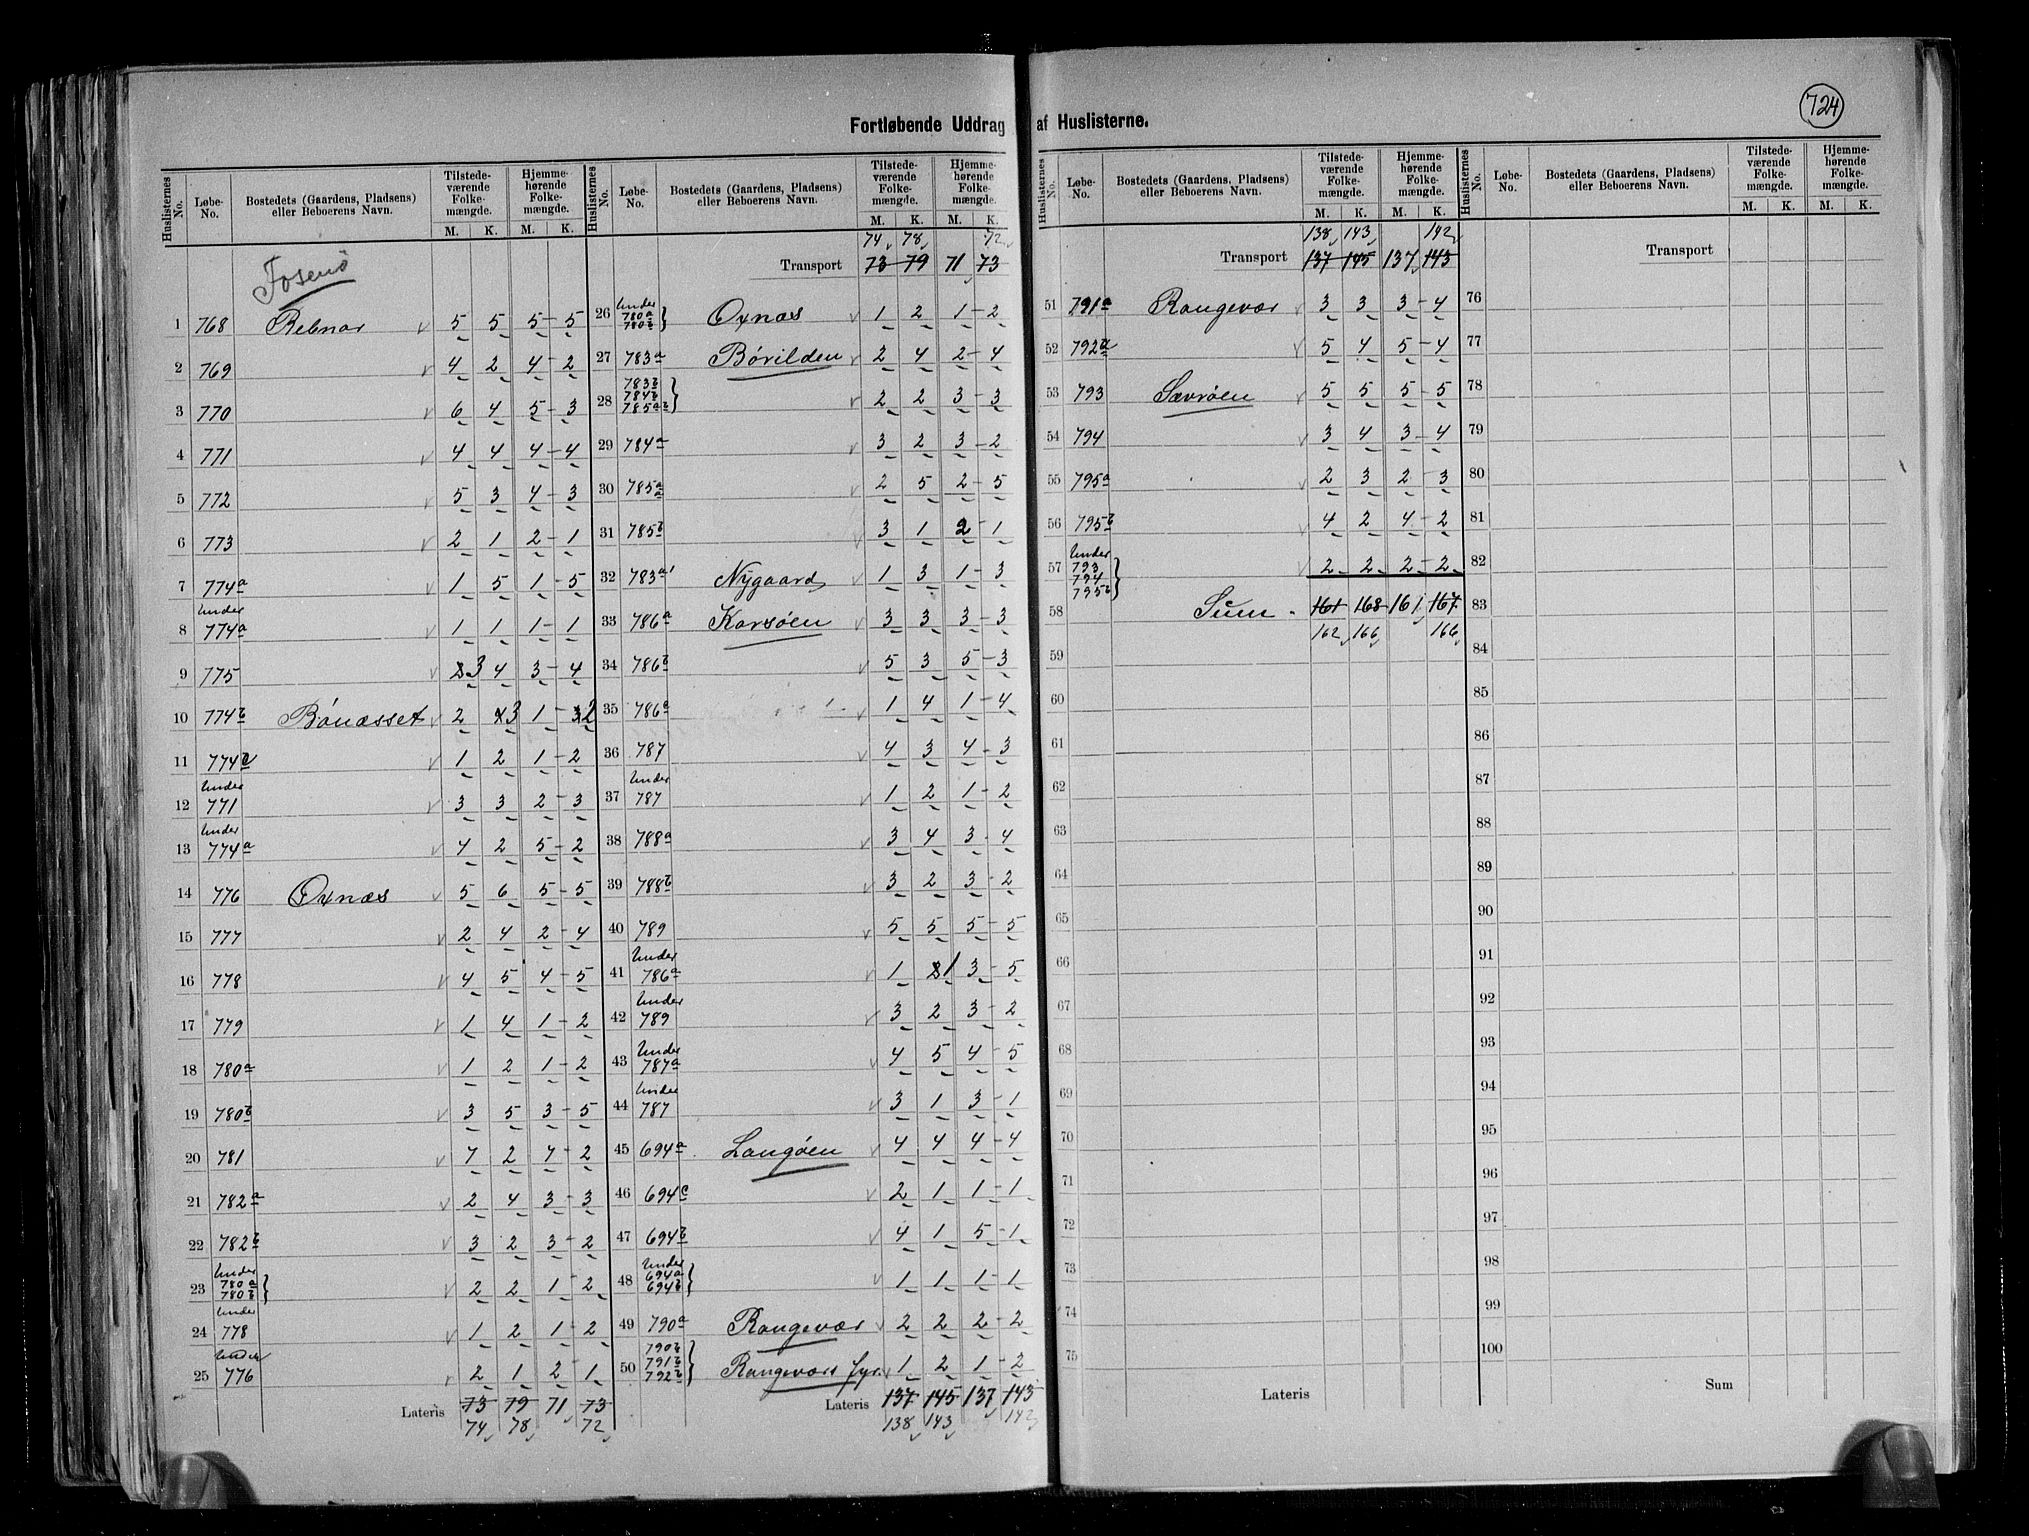 724
Fortløbende Uddrag af Huslisterne.
Huslisternes No. Løbe-No. Bostedets (Gaardens, Pladsens) eller Beboerens Navn. Tilstedeværende Folkemængde. M. K. Hjemmehørende Folkemængde. M. K.
Fosenø
1 768 Rebnor 5 5 5 - 5
2 769 4 2 4 - 2
3 770 6 4 5 - 3
4 771 4 4 4 - 4
5 772 5 3 4 - 3
6 773 2 1 2 - 1
7 774a 1 5 1 - 5
8 Under 774a 1 1 1 - 1
9 775 3 4 3 - 4
10 774b Bönæsset 2 3 1 - 2
11 774b 1 2 1 - 2
12 Under 771 3 3 2 - 3
13 Under 774a 4 2 5 - 2
14 776 Oxnæs 5 6 5 - 5
15 777 2 4 2 - 4
16 778 4 5 4 - 5
17 779 1 4 1 - 2
18 780a 1 2 1 - 2
19 780b 3 5 3 - 5
20 781 7 2 7 - 2
21 782a 2 4 3 - 3
22 782b 3 2 3 - 2
23 Under 780a 780b } 2 2 1 - 2
24 Under 778 1 2 1 - 2
25 Under 776 2 1 2 - 1
Lateris 73 79 71 73
74 78 72
Huslisternes No. Løbe-No. Bostedets (Gaardens, Pladsens) eller Beboerens Navn. Tilstedeværende Folkemængde. M. K. Hjemmehørende Folkemængde. M. K.
74 78 72
Transport 73 79 71 73
26 Under 780a 780b } Oxnæs 1 2 1 - 2
27 783a Börilden 2 4 2 - 4
28 783b 784b 785ab } 2 2 3 - 3
29 784a 3 2 3 - 2
30 785a 2 5 2 - 5
31 785b 3 1 2 - 1
32 783a' Nygaard 1 3 1 - 3
33 786a Korsøen 3 3 3 - 3
34 786b 5 3 5 - 3
35 786a 1 4 1 - 4
36 787 4 3 4 - 3
37 Under 787 1 2 1 - 2
38 788a 3 4 3 - 4
39 788b 3 2 3 - 2
40 789 5 5 5 - 5
41 Under 786a 1 1 3 - 5
42 Under 789 3 2 3 - 2
43 Under 787a 4 5 4 - 5
44 Under 787 3 1 3 - 1
45 694a Langøen 4 4 4 - 4
46 694c 2 1 1 - 1
47 694b 4 1 5 - 1
48 Under 694a 694b } 1 1 1 - 1
49 790a Rongevær 2 2 2 - 2
50 790b 791b 792b } Rongevær fyr 1 2 1 - 2
Lateris 137 145 137 143
138 143 142
Huslisternes No. Løbe-No. Bostedets (Gaardens, Pladsens) eller Beboerens Navn. Tilstedeværende Folkemængde. M. K. Hjemmehørende Folkemængde. M. K.
138 143 142
Transport 137 145 137 143
51 791a Rongevær 3 3 3 - 4
52 792a 5 4 5 - 4
53 793 Sævrøen 5 5 5 - 5
54 794 3 4 3 - 4
55 795a 2 3 2 - 3
56 795b 4 2 4 - 2
57 Under 793 794 795b } 2 2 2 - 2
58 Sum 161 168 161 167
162 166 166
59
60
61
62
63
64
65
66
67
68
69
70
71
72
73
74
75
Lateris
Huslisternes No. Løbe-No. Bostedets (Gaardens, Pladsens) eller Beboerens Navn. Tilstedeværende Folkemængde. M. K. Hjemmehørende Folkemængde. M. K.
Transport
76
77
78
79
80
81
82
83
84
85
86
87
88
89
90
91
92
93
94
95
96
97
98
99
100
Sum